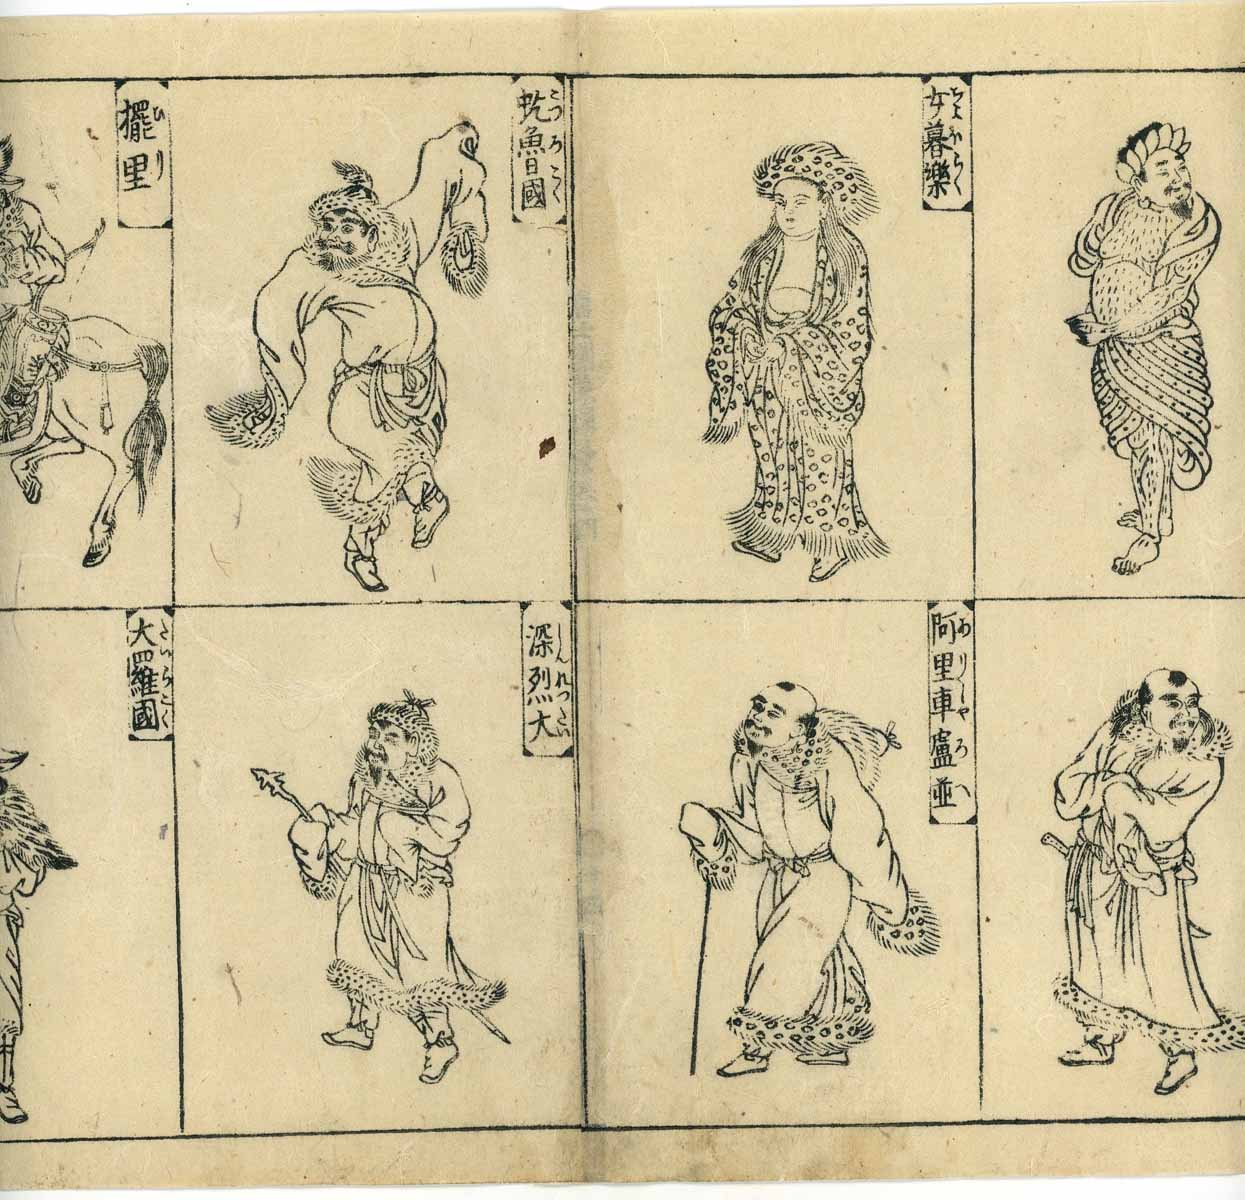 女暮樂
ぢよほらく
虼魯國
こつろこく
擺里
ひり
阿里車盧並
ありしやろへ
深烈大
しんれつたい
大羅國
たいらこく